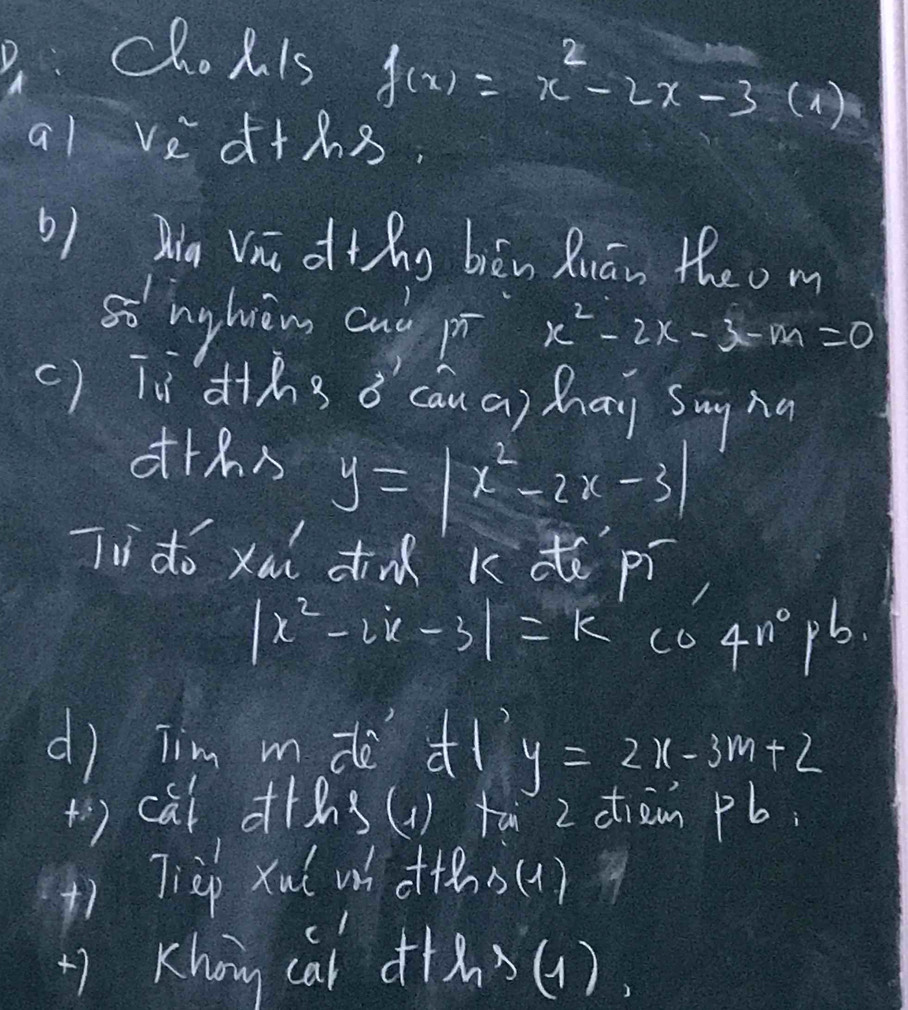 D1: Cho h/s f(x) = x² - 2x - 3 (1)
a) Vẽ đths.
b) Dựa vào đths biện luận theo m
số nghiệm của pt x² - 2x - 3 - m = 0
c) Từ đths ở câu a) hãy suy ra
đths y = |x² - 2x - 3|
Từ đó xác định k để pt
|x² - 2x - 3| = k có 4 n° pb.
d) Tìm m để đt y = 2x - 3m + 2
+) cắt đths (1) tại 2 điểm pb.
+) Tiếp xúc với đths (1)
+) Không cắt đths (1).